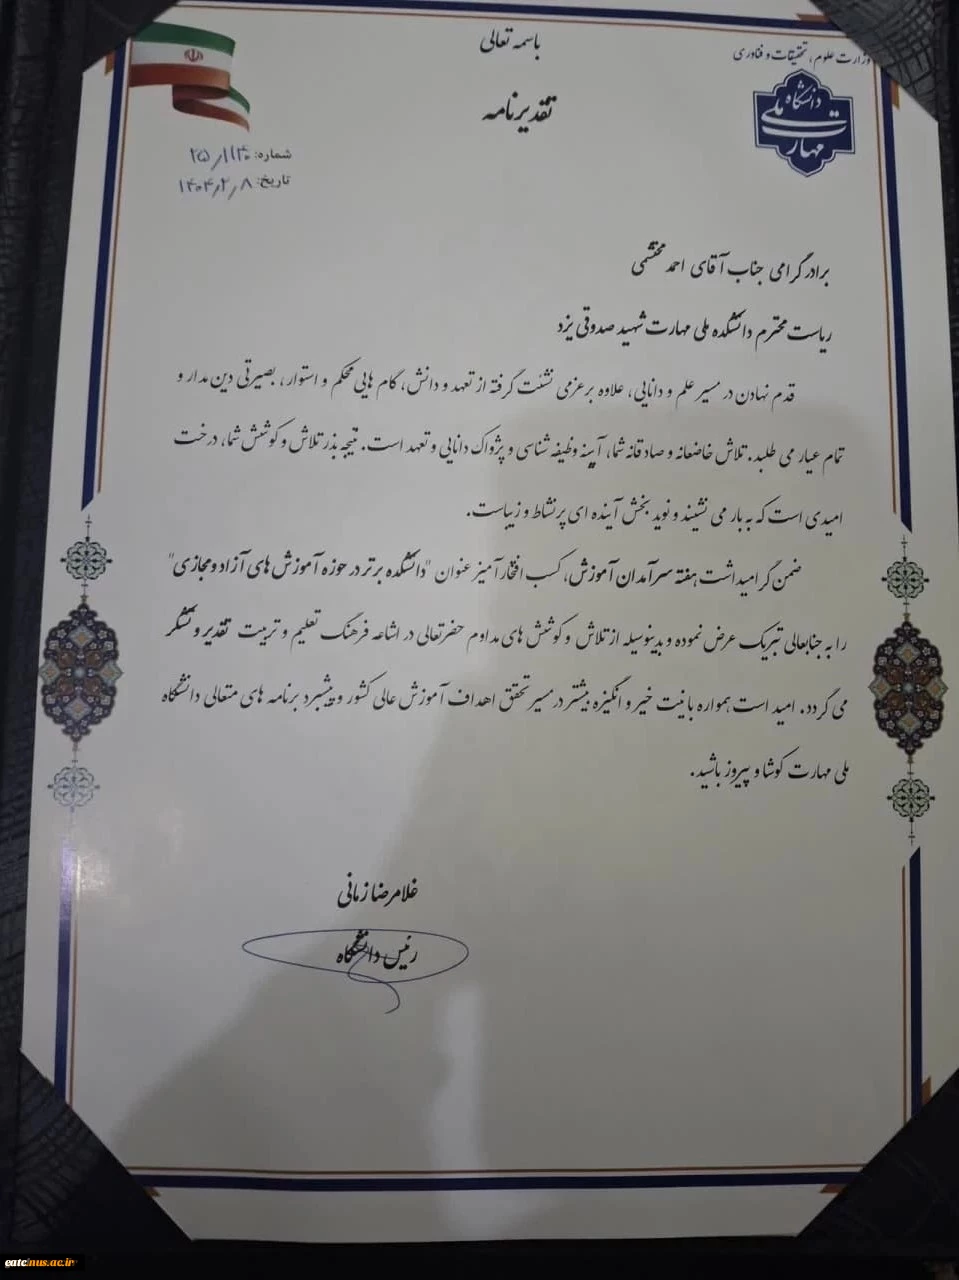 باسمه تعالی
وزارت علوم، تحقیقات و فناوری
دانشگاه ملی مهارت
تقدیرنامه
شماره: ۲۵/۱۱۴۰
تاریخ: ۱۴۰۴/۲/۸
برادر گرامی جناب آقای احمد محتشمی
ریاست محترم دانشکده ملی مهارت شهید صدوقی یزد
قدم نهادن در مسیر علم و دانایی، علاوه بر عزمی نشئت گرفته از تعهد و دانش، گام هایی محکم و استوار، بصیرتی دین مدار و
تمام عیار می طلبد. تلاش خاضعانه و صادقانه شما، آیینه وظیفه شناسی و پژواک دانایی و تعهد است. نتیجه بذر تلاش و کوشش شما، درخت
امیدی است که به بار می نشیند و نوید بخش آینده ای پرنشاط و زیباست.
ضمن گرامیداشت هفته سرآمدان آموزش، کسب افتخارآمیز عنوان "دانشکده برتر در حوزه آموزش های آزاد و مجازی"
را به جنابعالی تبریک عرض نموده و بدینوسیله از تلاش و کوشش های مداوم حضرتعالی در اشاعه فرهنگ تعلیم و تربیت تقدیر و تشکر
می گردد. امید است همواره با نیت خیر و انگیزه بیشتر در مسیر تحقق اهداف آموزش عالی کشور و پیشبرد برنامه های متعالی دانشگاه
ملی مهارت کوشا و پیروز باشید.
غلامرضا زمانی
رئیس دانشگاه